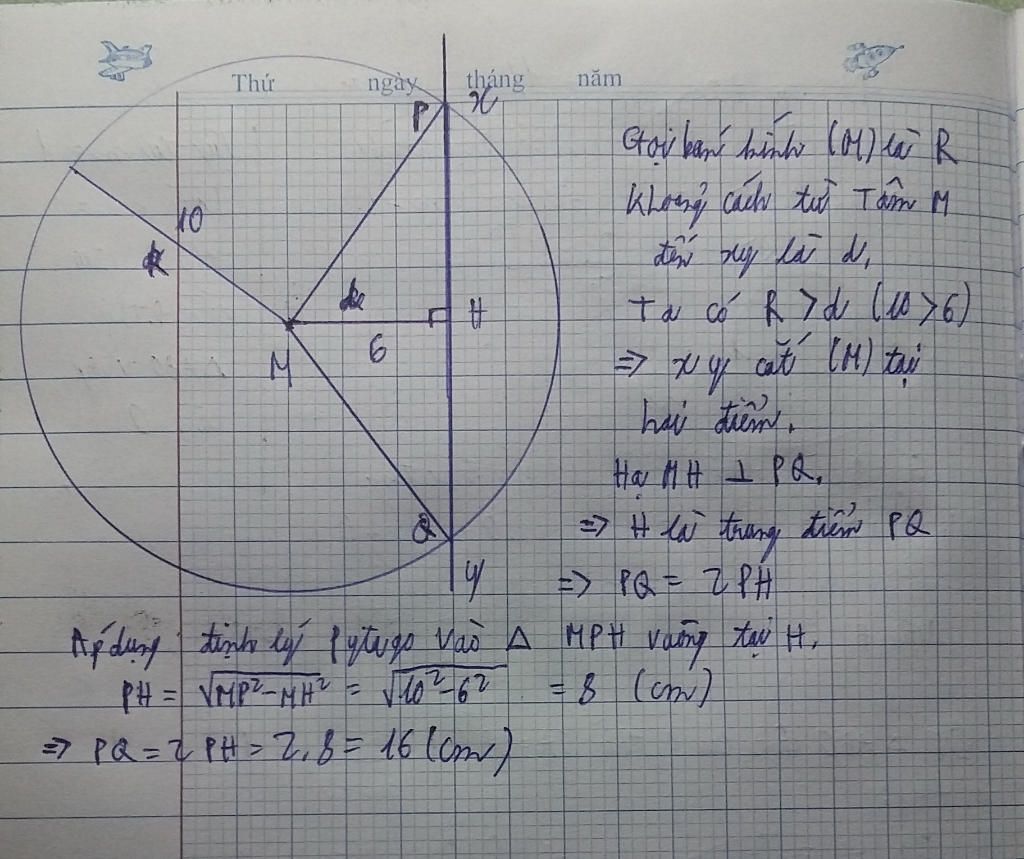 Thứ ngày tháng năm
P x
10
R
d
H
6
M
Q
y
Gọi bán kính (M) là R
Khoảng cách từ Tâm M
đến xy là d,
Ta có R > d (10 > 6)
=> xy cắt (M) tại
hai điểm.
Hạ MH ⊥ PQ,
=> H là trung điểm PQ
=> PQ = 2PH
Áp dụng định lý Pytago vào Δ MPH vuông tại H,
PH = √MP²-MH² = √10²-6² = 8 (cm)
=> PQ = 2PH = 2.8 = 16 (cm)